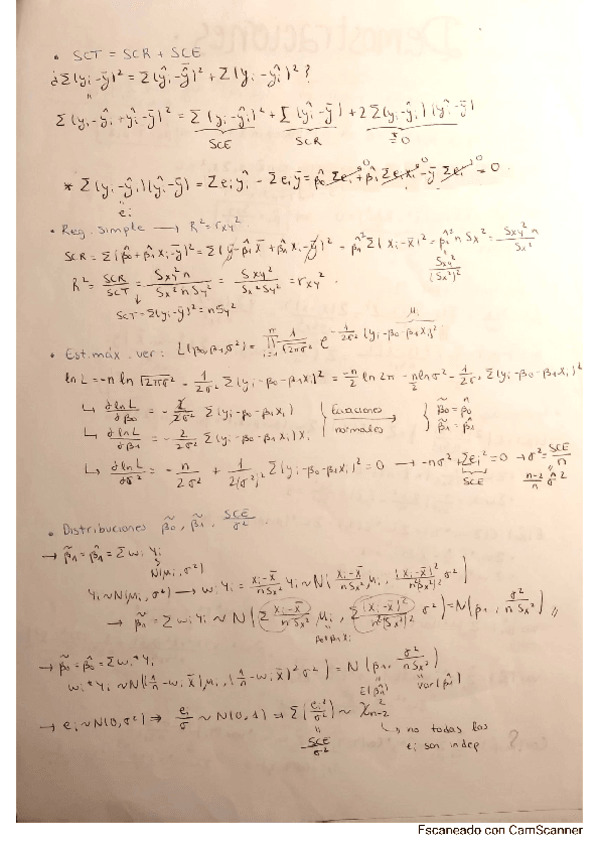 • SCT = SCR + SCE
¿Σ(yi - ȳ)² = Σ(ŷi - ȳ)² + Σ(yi - ŷi)²?
Σ(yi - ŷi + ŷi - ȳ)² = Σ(yi - ŷi)² + Σ(ŷi - ȳ) + 2Σ(yi - ŷi)(ŷi - ȳ)
SCE SCR = 0
* Σ(yi - ŷi)(ŷi - ȳ) = Σei ŷi - Σei ȳ = β̂0 Σei + β̂1 Σei xi - ȳ Σei = 0.
ei
• Reg. simple → R² = rxy²
SCR = Σ(β̂0 + β̂1 xi - ȳ)² = Σ(ȳ - β̂1 x̄ + β̂1 xi - ȳ)² = β̂1² Σ(xi - x̄)² = β̂1² n Sx² = Sxy² n / Sx²
Sxy² / (Sx²)²
R² = SCR/SCT = Sxy² n / Sx² n Sy² = Sxy² / Sx² Sy² = rxy².
SCT = Σ(yi - ȳ)² = n Sy²
• Est. máx. ver: L(β0, β1, σ²) = ∏ 1/√(2πσ²) e^(-1/2σ² (yi - β0 - β1xi)²)
ln L = -n ln √(2πσ²) - 1/2σ² Σ(yi - β0 - β1xi)² = -n/2 ln 2π - n/2 ln σ² - 1/2σ² Σ(yi - β0 - β1xi)²
↳ ∂lnL/∂β0 = - 2/2σ² Σ(yi - β0 - β1xi)
Ecuaciones normales
β̃0 = β̂0
↳ ∂lnL/∂β1 = - 2/2σ² Σ(yi - β0 - β1xi) xi
↳ ∂lnL/∂σ² = - n/2σ² + 1/2(σ²)² Σ(yi - β0 - β1xi)² = 0 → -nσ² + Σei² = 0 → σ² = SCE/n
SCE
n-2/n σ̂²
• Distribuciones β̃0, β̃1, SCE/σ²
→ β̃1 = β̂1 = Σ wi Yi
N(μi, σ²)
Yi ~ N(μi, σ²) → wi Yi = (xi - x̄)/(n Sx²) Yi ~ N((xi - x̄)/(n Sx²) μi, (xi - x̄)²/(n²(Sx²)²) σ²)
→ β̃1 = Σ wi Yi ~ N(Σ (xi - x̄)/(n Sx²) μi, Σ (xi - x̄)²/(n²(Sx²)²) σ²) = N(β1, σ²/(n Sx²))
β0 + β1 xi
→ β̃0 = β̂0 = Σ wi* Yi
wi* Yi ~ N((1/n - wi x̄) μi, (1/n - wi x̄)² σ²) = N(β1, σ²/(n Sx²))
E(β̂1) Var(β̂1)
→ ei ~ N(0, σ²) ⇒ ei/σ ~ N(0, 1) ⇒ Σ(ei²/σ²) ~ χ²n-2
SCE/σ²
↳ no todas las
ei son indep
Escaneado con CamScanner